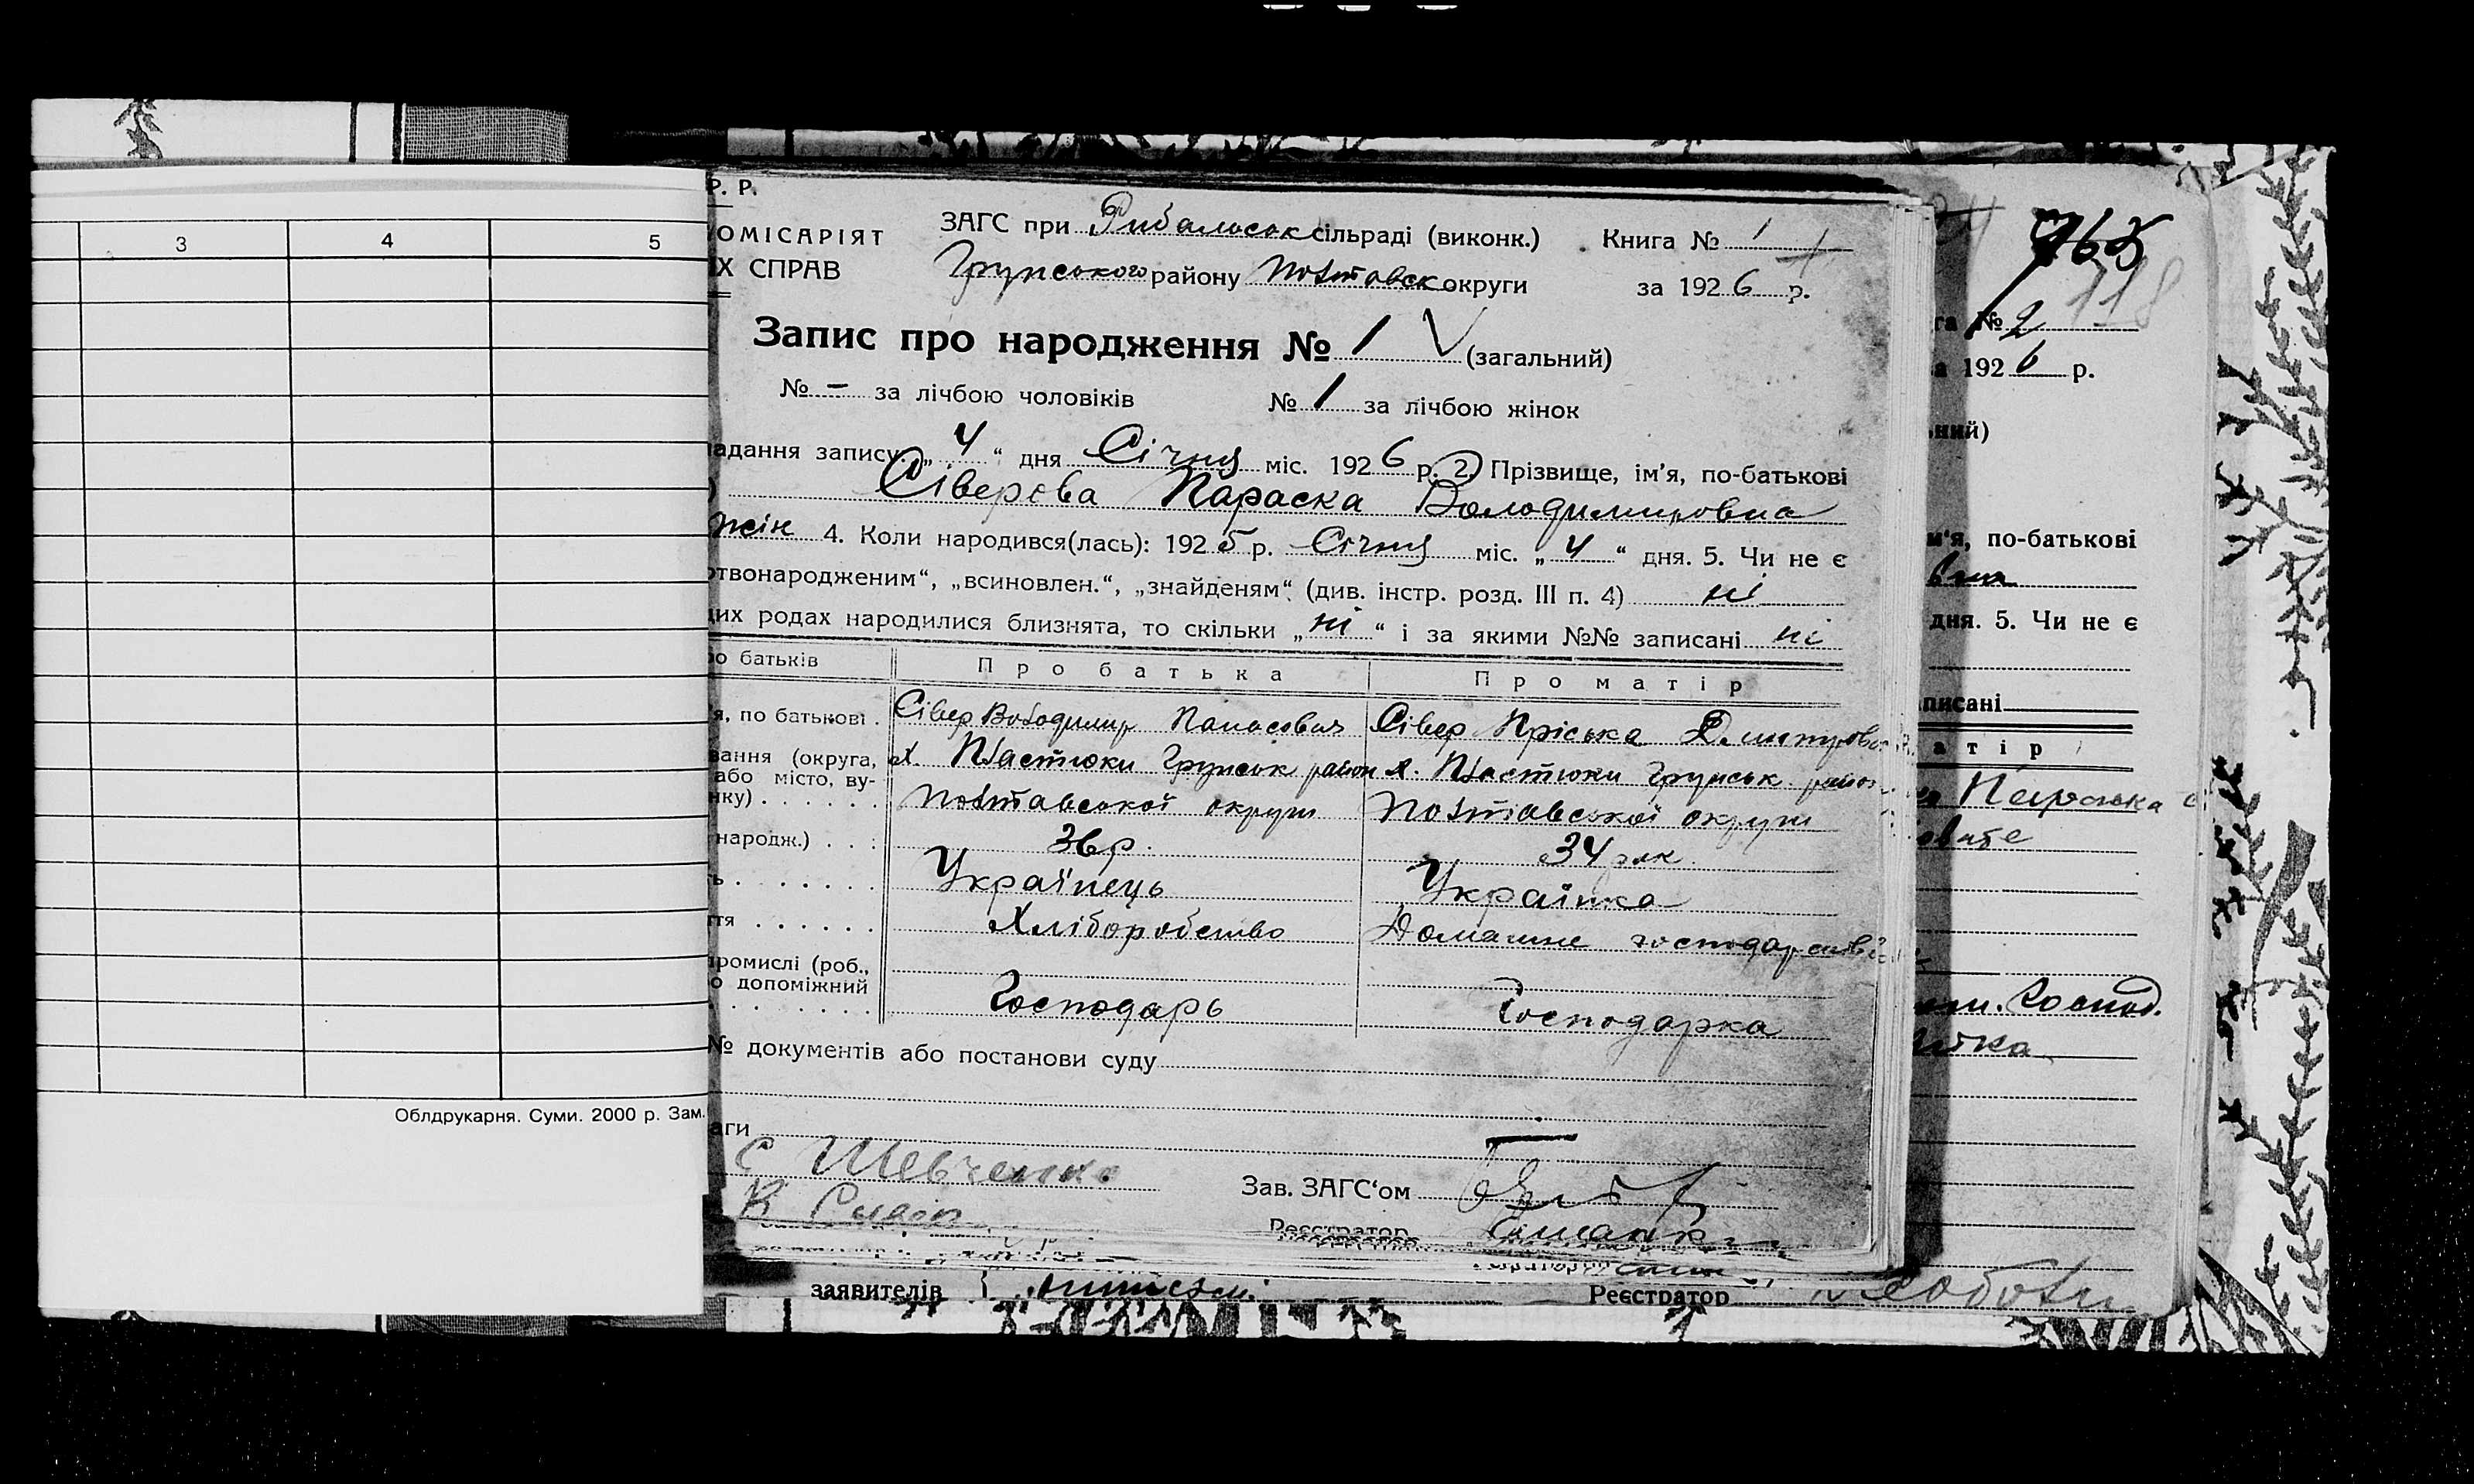 3 4 5
Облдрукарня. Суми. 2000 р. Зам.
Р. Р.
ОМІСАРІЯТ
ІХ СПРАВ
ЗАГС при Рибальськ сільраді (виконк.) Книга № 1
Грунського району Полтавск округи за 1926 р.
Запис про народження № 1 (загальний)
№ – за лічбою чоловіків № 1 за лічбою жінок
адання запису „4“ дня Січня міс. 1926 р. 2. Прізвище, ім'я, по-батькові
) Сіверова Параска Володимировна
жін 4. Коли народився(лась): 1925 р. Січня міс. „4“ дня. 5. Чи не є
ртвонародженим“, „всиновлен.“, „знайденям“ (див. інстр. розд. III п. 4) ні
цих родах народилися близнята, то скільки „ні“ і за якими №№ записані ні
ро батьків Про батька Про матір
я, по батькові . Сівер Володимир Панасович Сівер Пріська Дмитровна
вання (округа, х. Пластюки Грунськ район х. Пластюки Грунськ район
або місто, ву-
нку) . . . . . . Полтавської округи Полтавської округи
народж.) . . : 36 р. 34 рок
ь . . . . . . . Українець Українка
ття . . . . . . Хліборобство Домашнє господарство
промислі (роб.,
о допоміжний
. . . . . . . Господарь Господарка
№ документів або постанови суду
аги
С Шевченко
Зав. ЗАГС'ом
К
Реєстратор
заявителів
Реєстратор
765
118
га № 2
а 1926 р.
ьний)
м'я, по-батькові
вна
дня. 5. Чи не є
писані
а т і р
Параска
овате
Господ.